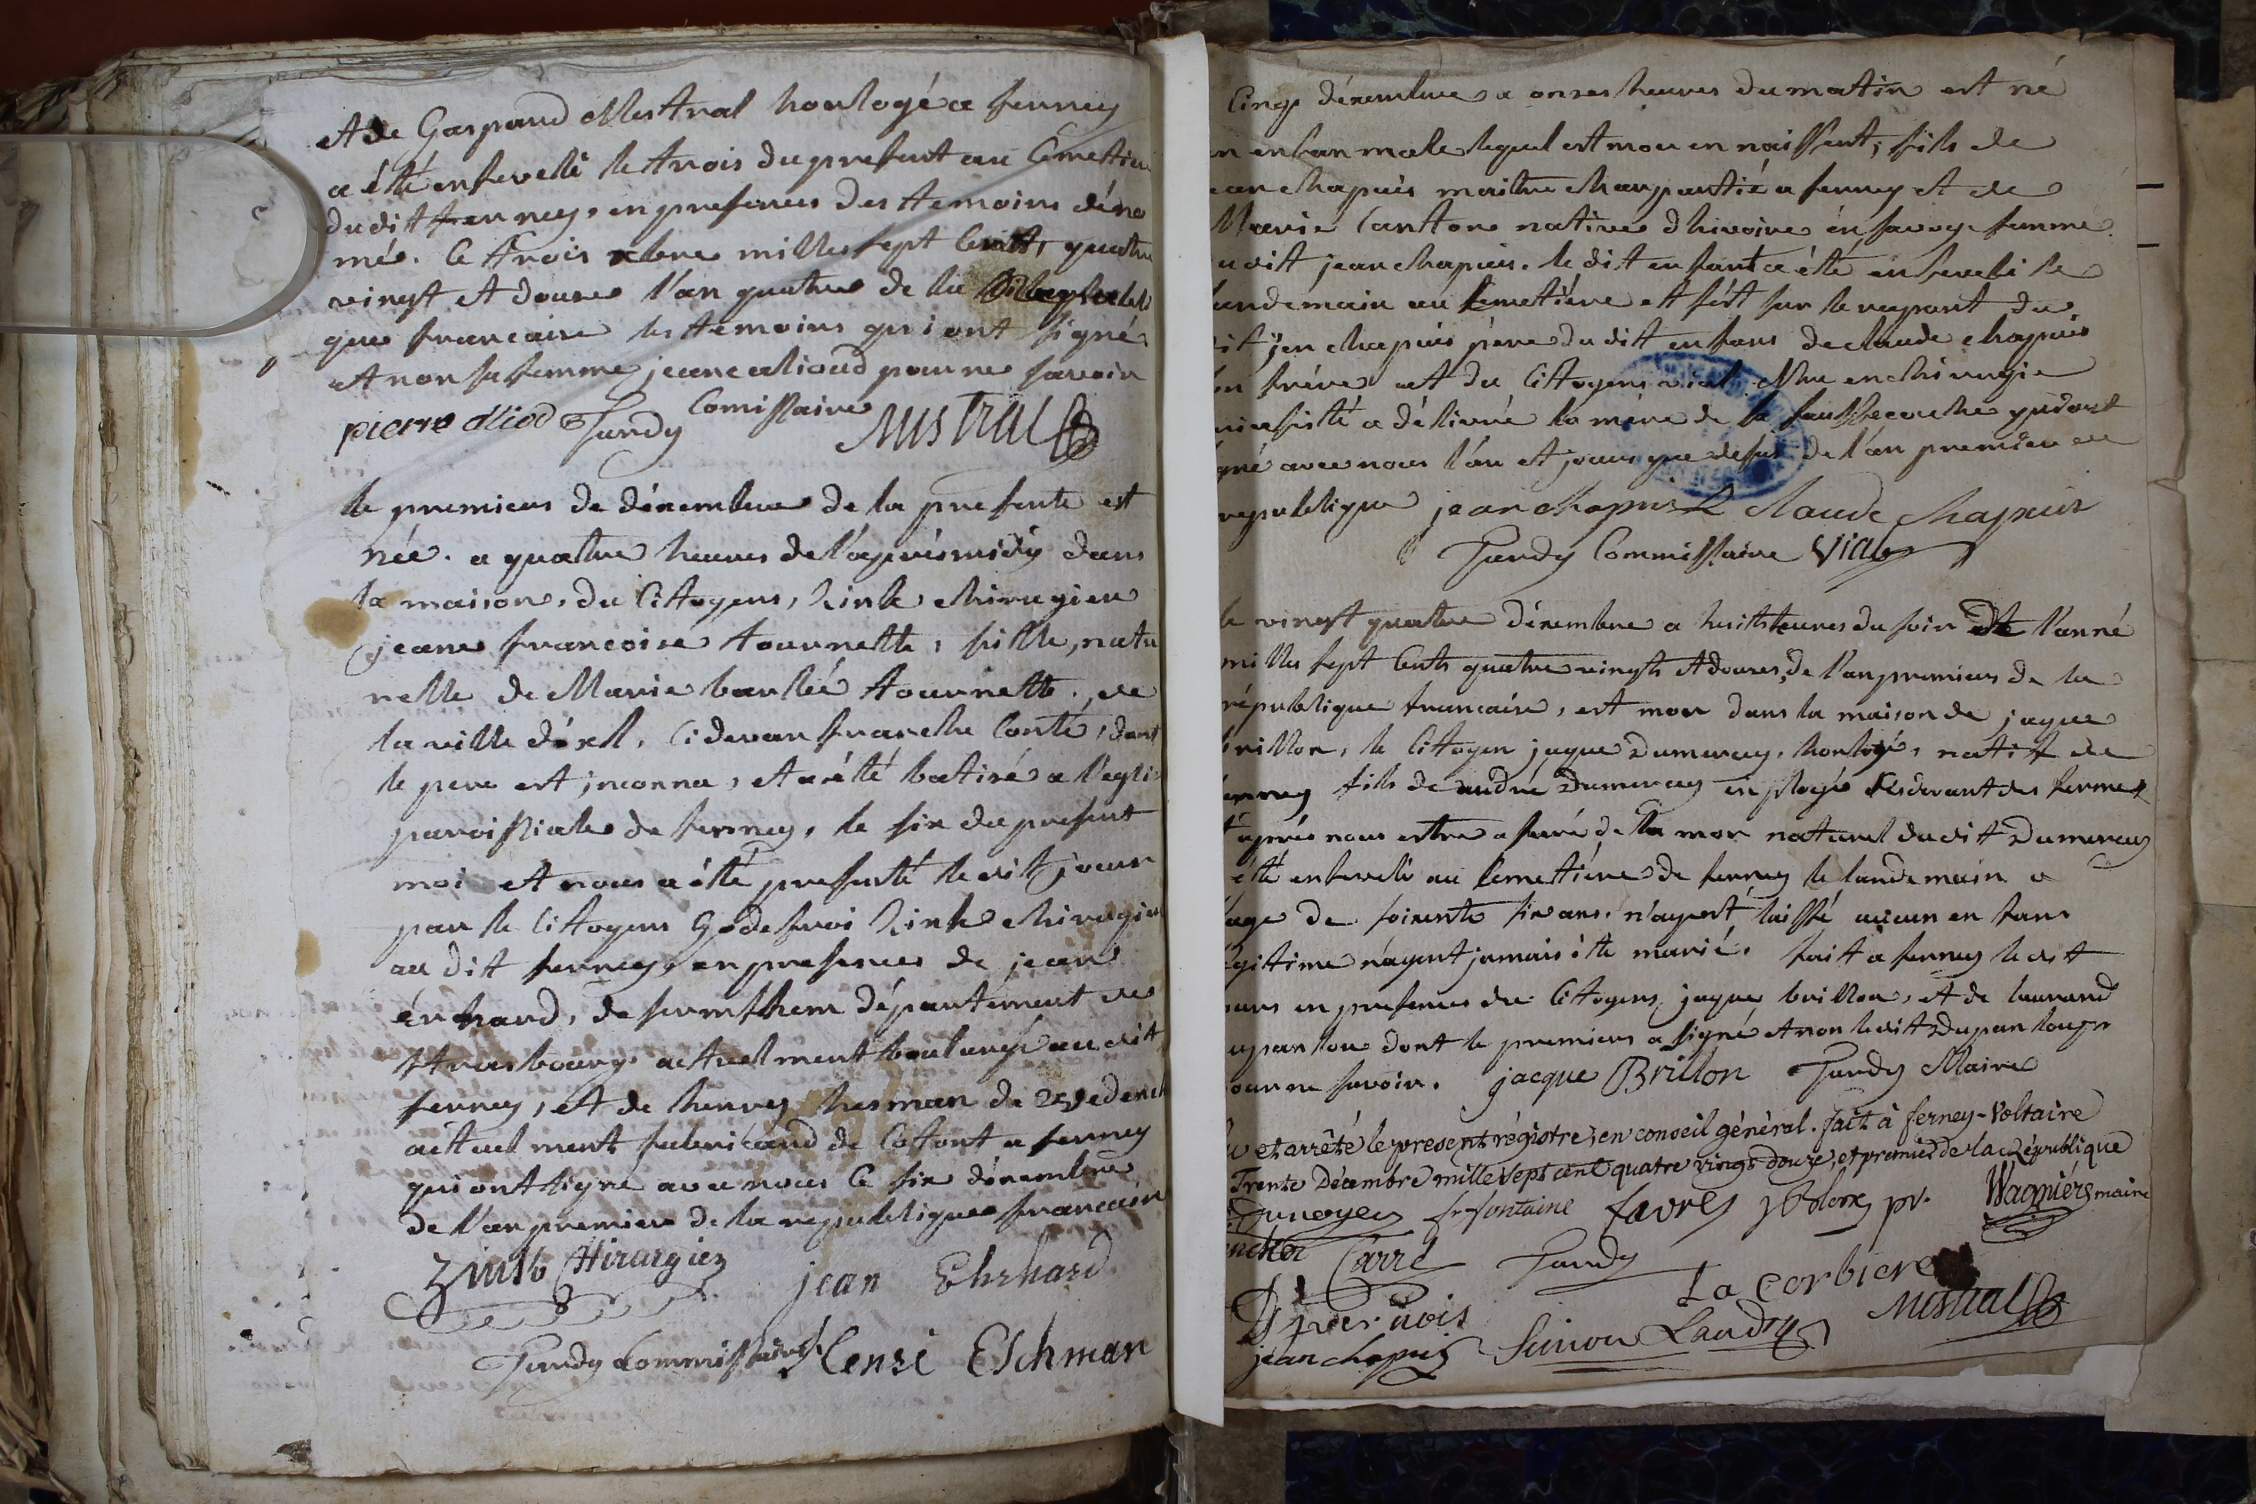 et de Gaspard Mestral horlogé a ferney
a été ensevelli le trois du present au Cemetiere
du dit ferney, en presences des temoins déno
més. Ce trois xbre milles sept Cents quatre
vingt et douse l'an quatre de la
que francaise les temoins qui ont signé
et non sa femme jeane aliaud pour ne savoir
pierre aliod Jundy Comissaire Mistral
le premiers de décembre de la presente est
née. a quatre heures de l'après midy dans
la maison, du Citoyens, Zink chirugien
jeane francoise tournette, fille, natu
relle de Marie barbé tournette. de
la ville , Cidevan franche Conté, dont
le pere est inconnu, et a été batisé a l'eglis
paroissiale de ferney, le six du present
moi et nous a été presenté le dit jour
par le Citoyens Godefroi Zink chirugien
au dit ferney, en presences de jean
érhard, de département de
strasbourg actuelment boulangé au dit
ferney, et de henry hesman de
actuelment fabricand de Cotont a ferney
qui ont signe avec nous Ce six décembre
de l'an premier de la republique francaise
Zink Chirurgien jean Ehrhard
Jundy Commissaire Henri Eschman
Cinq décembre a onses heures du matin est né
un enfan male lequel est mor en naissent, fils de
jean chapuis maitre charpantié a ferney et de
Marie Cantone native d'hivoire en savoye femme
du dit jean chapuis. le dit enfant a été enseveli le
landemain au Cemetiére et fét sur le raport du
dit jen chapuis pére du dit enfans de claude chapuis
son frére et du Citoyens vial Mtre en chirurgie
qui a délivré la mére de la faussecouche qui ont
signé avec nous l'an et jour que desus de l'an premier de
republique jean chapuis claude chapuis
Jundy Commissaire Vial
le vingt quatre décembre a huit heures du soir de l'anné
milles sept Cents quatre vingts et douses, de l'an premiers de la
république francaise, est mor dans la maison de jaque
brillon, le Citoyen jaque Dumercy, horlogé, natif de
ferney fils de andré Dumercy emploÿé Cidevant des fermes
après nous estre asuré, de la mor naturel du dit Dumercy
été enseveli au Cemetiére de ferney le landemain a
l'age de soixente six ans. n'ayent laissé aucun enfans
légitime n'ayent jamais été marié. fait a ferney le dit
jours en presences du Citoyens jaque brillon, et de laurand
dupanlou dont le premiers a signé et non le dit Dupanloup
pour ne savoir. jacque Brillon Jundy Maire
lu et arrêté le present régistre, en conseil général. fait à ferney-Voltaire
Trente Décembre mille sept cent quatre vingt douze, et premier de la République
Dunoyer fr fontaine favre pr. Wagnière maire
Carré Jundy La Corbiere
Simon Landry Mistral
jean chapuis